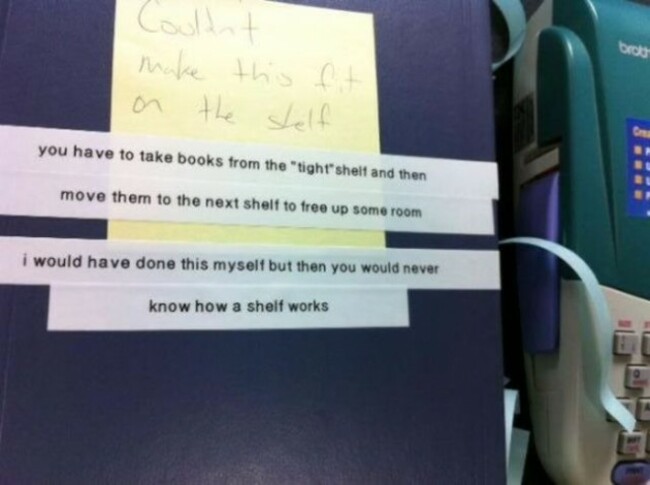 Couldn't
make this fit
on the shelf
you have to take books from the "tight"shelf and then
move them to the next shelf to free up some room
i would have done this myself but then you would never
know how a shelf works
broth